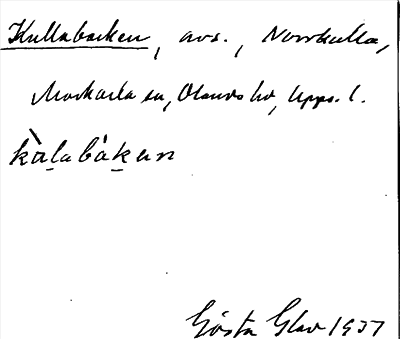 Kullabacken, avs., Norrkulla,
Morkarla sn, Olands hd, Upps. l.
kàlabákan
Gösta Glav 1937